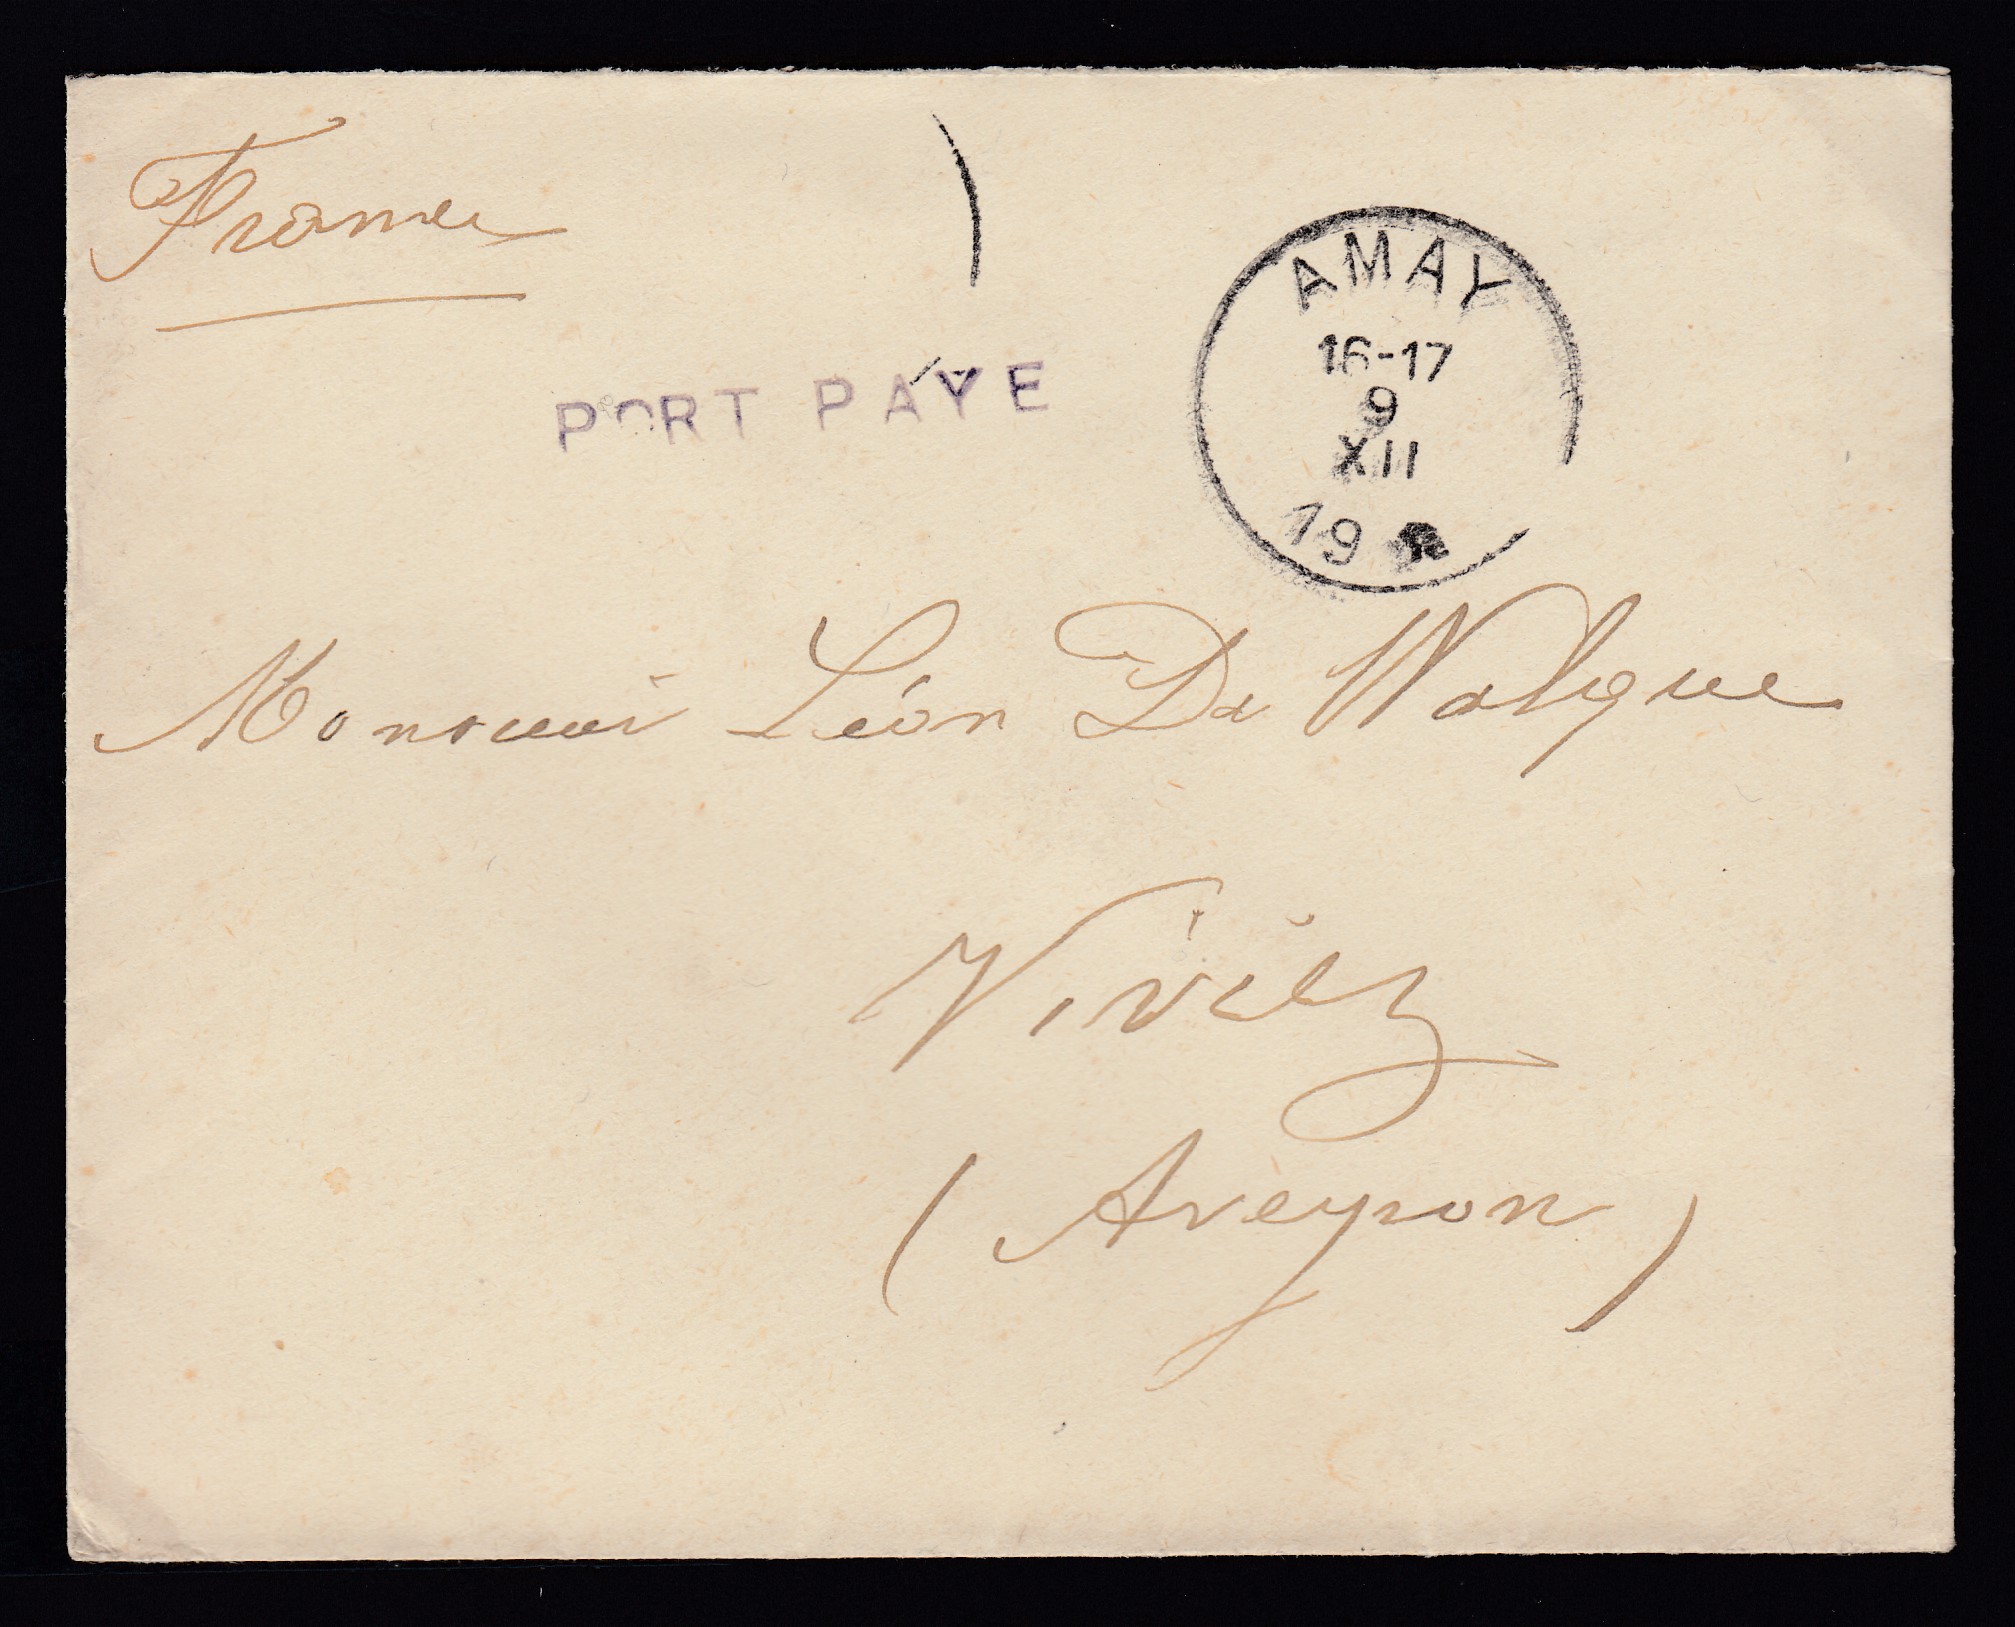 France
AMAY
16-17
9
XII
19
PORT PAYE
Monsieur Léon De Walque
Viviez
(Aveyron)